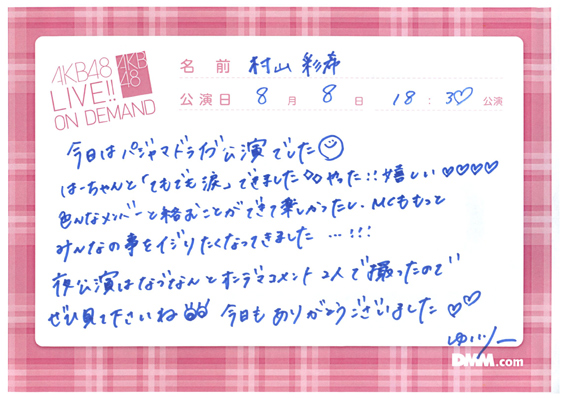 AKB48
LIVE!!
ON DEMAND
AKB
48
名前 村山彩希
公演日 8月8日 18:30公演
今日はパジャマドライブ公演でした
はーちゃんと「てもでも涙」できました やった!!嬉しい♡♡♡♡
色んなメンバーと絡むことができて楽しかったし、MCももっと
みんなの事をイジりたくなってきました…!!!
夜公演はなつなんとオンデマコメント2人で撮ったので
ぜひ見て下さいね 今日もありがとうございました♡♡
ゆいりー
DMM.com